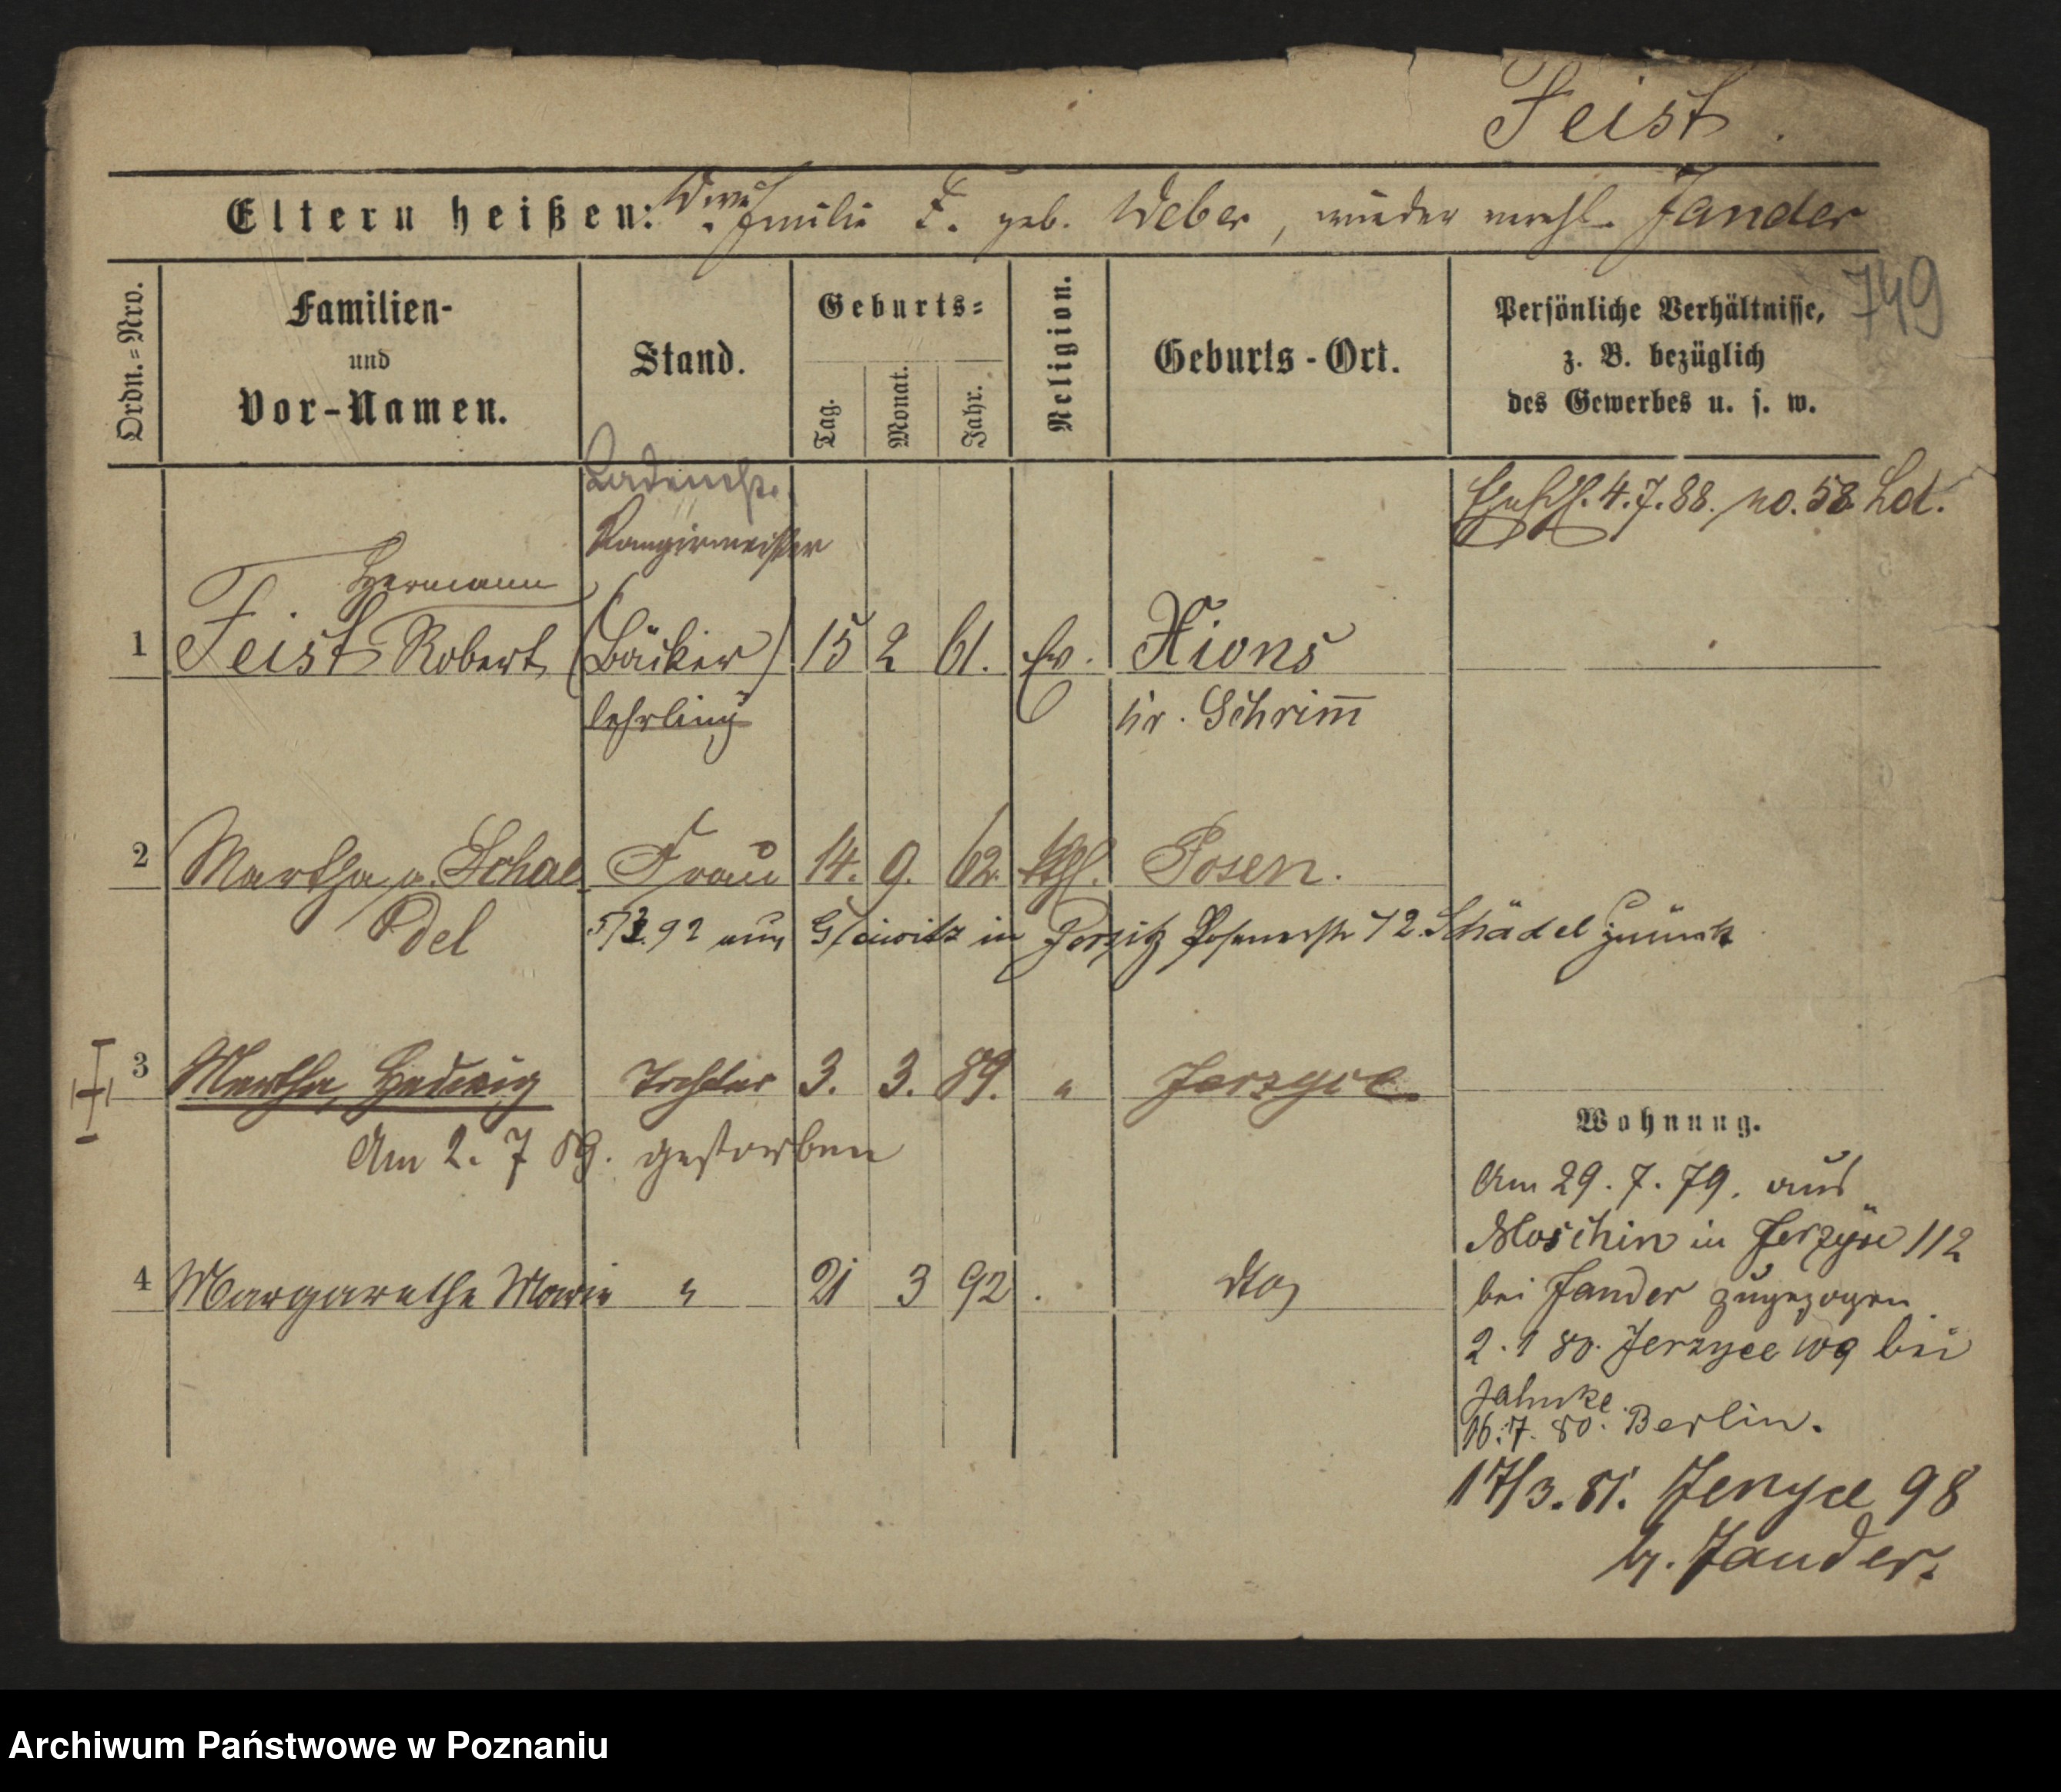 Feist.
Eltern heißen: Wwe. Emilie F. geb. Weber, wieder verehl. Jander
749
Ordn.=Nro.
Familien-
und
Vor-Namen.
Stand.
Geburts=
Tag.
Monat.
Jahr.
Religion.
Geburts-Ort.
Persönliche Verhältnisse,
z. B. bezüglich
des Gewerbes u. s. w.
4.7.88. no. 58. Ldt.
Rangirmeister
Hermann
1 Feist Robert (Bäcker) 15 2 61. Ev. Xions
lehrling Kr. Schrimm
2 Martha g. Schae Frau 14. 9. 62. kth. Posen.
del 92 aus Gleiwitz in Jersitz Posenerstr 72. Schädel zurück
3 Martha, Hedwig Tochter 3. 3. 89. " Jerzyce
Am 2. 7 89. gestorben
4 Margarethe Marie " 21 3 92 dto
Wohnung.
Am 29. 7. 79. aus
Moschin in Jerzyce 112
bei Jander zugezogen
2. 1 80. Jerzyce 109 bei
Jahnke.
16. 7. 80. Berlin.
17/3. 81. Jerzyce 98
b. Jander.
Archiwum Państwowe w Poznaniu